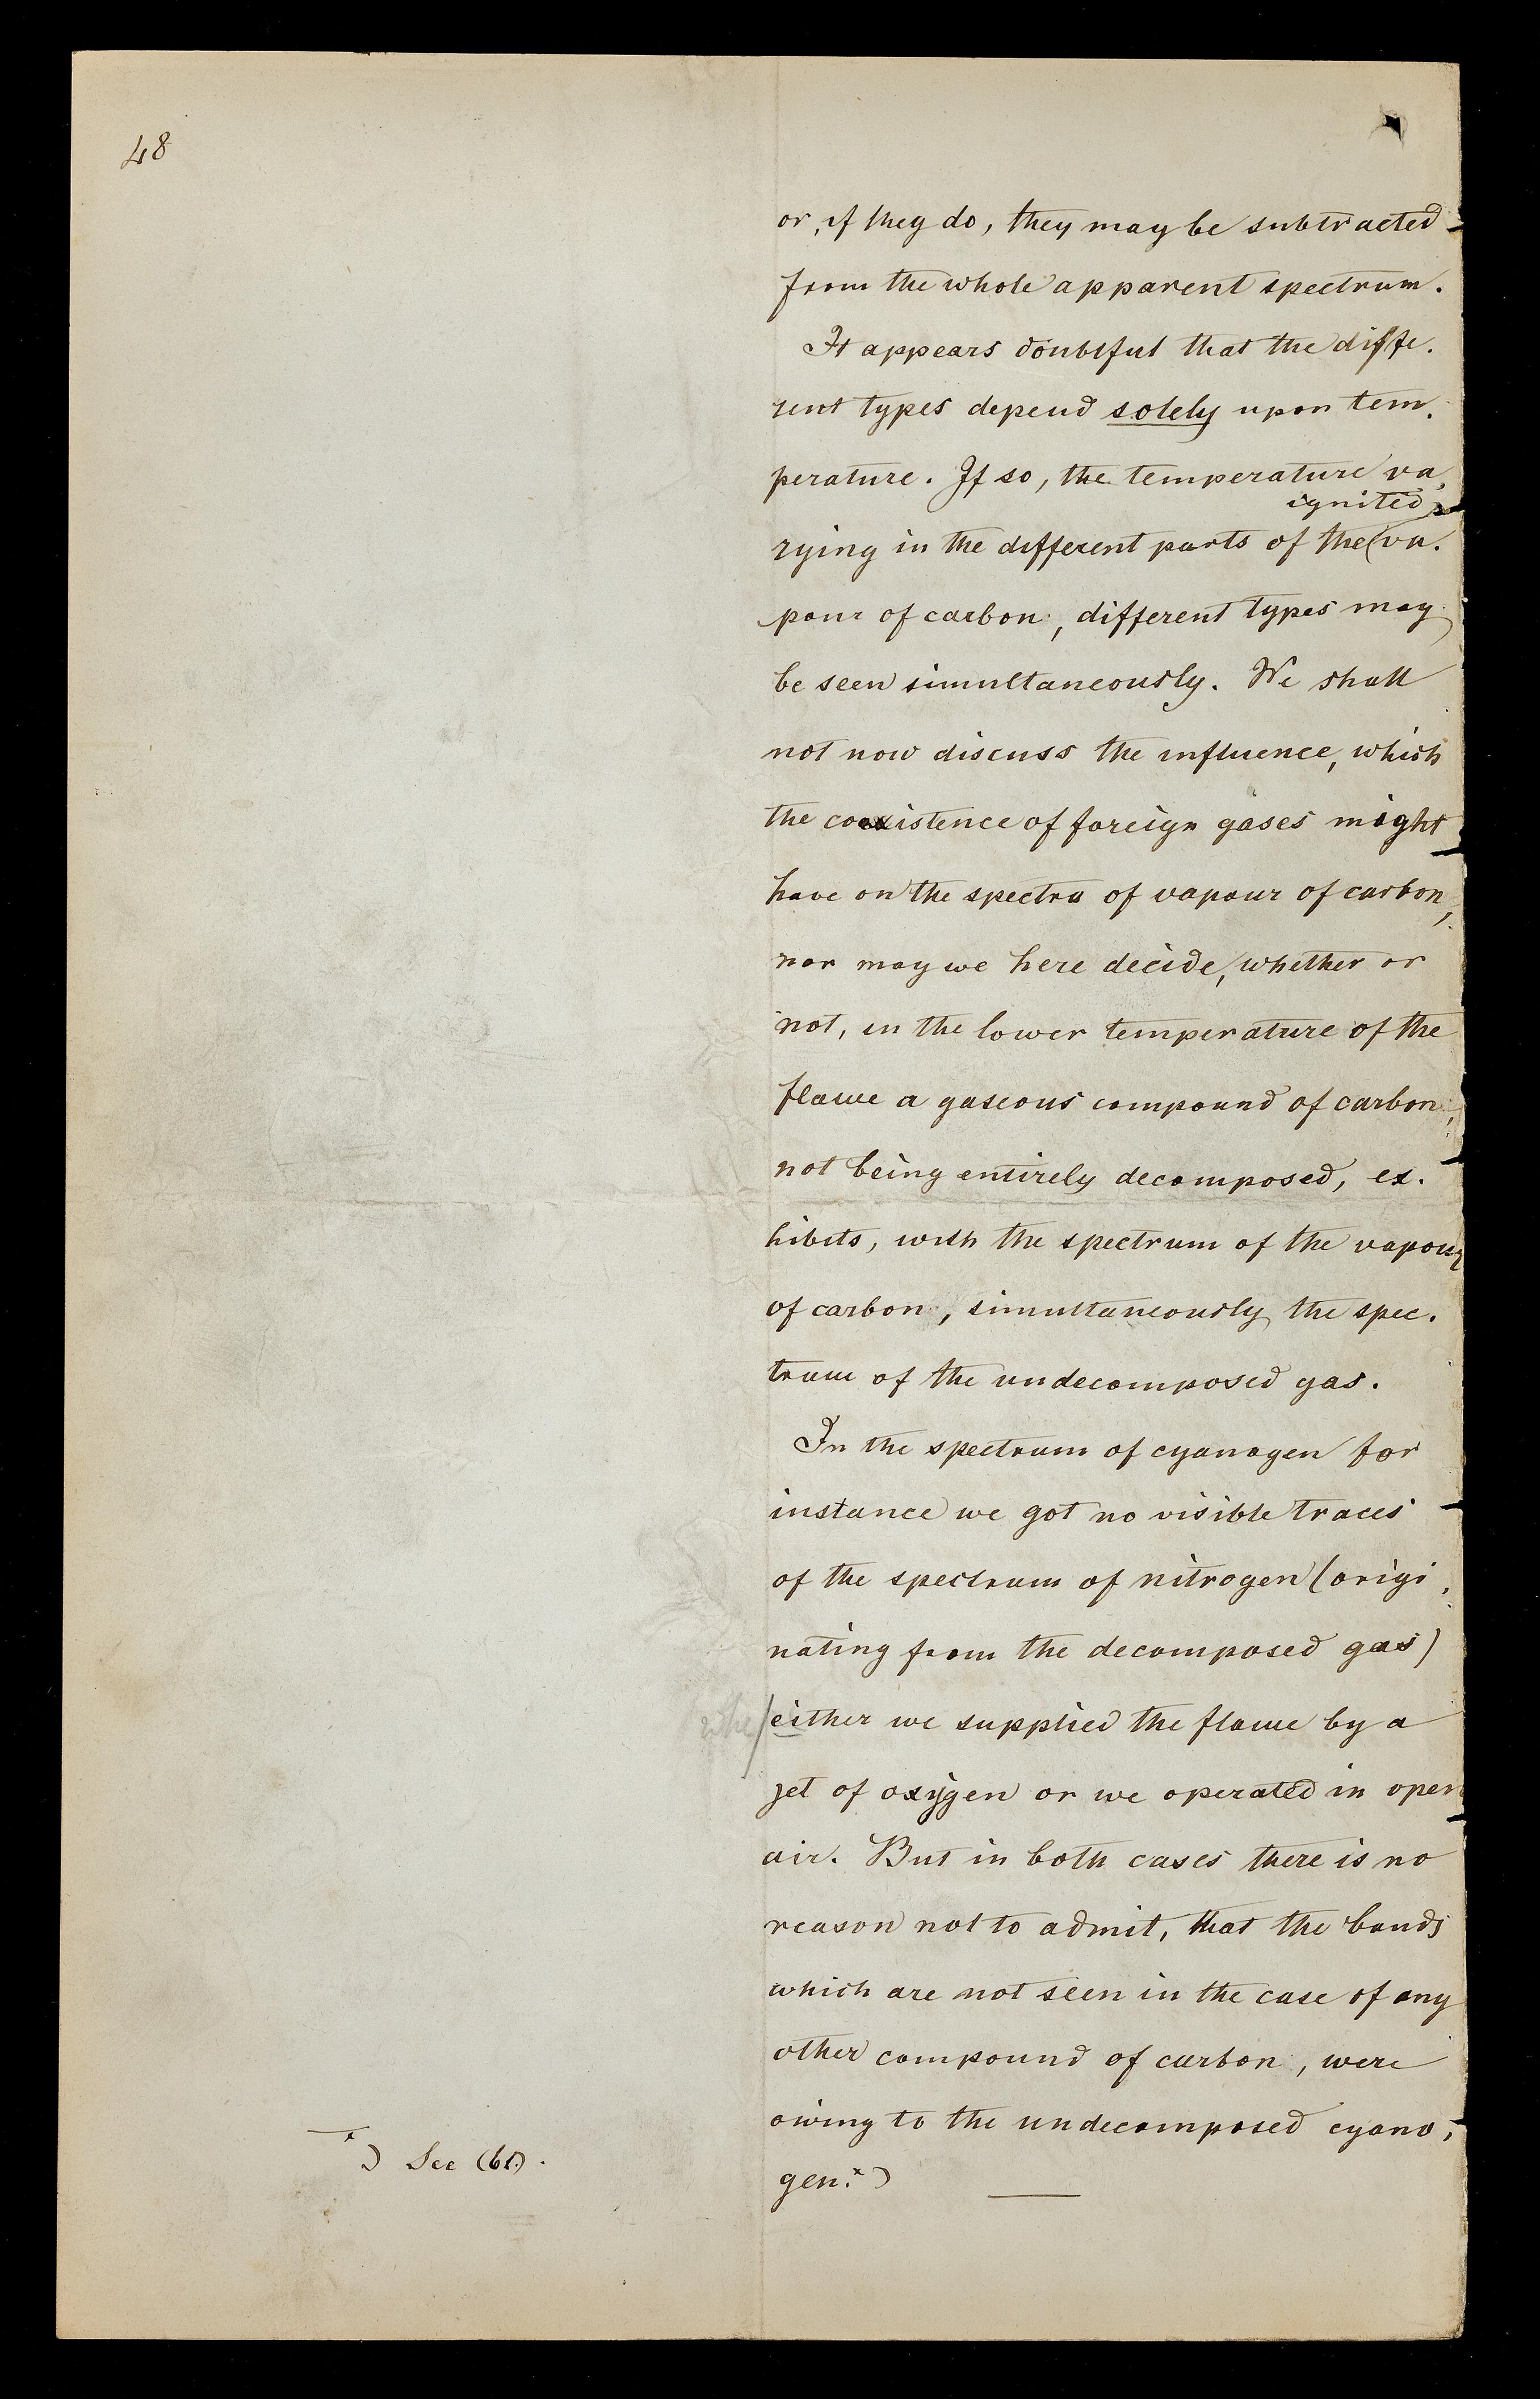 48
or, if they do, they may be subtracted
from the whole apparent spectrum.
It appears doubtful that the diffe.
rent types depend solely upon tem.
perature. If so, the temperature va.
ignited
rying in the different parts of the va.
pour of carbon, different types may
be seen simultaneously. We shall
not now discuss the influence, which
the coexistence of foreign gases might
have on the spectra of vapour of carbon,
nor may we here decide, whether or
not, in the lower temperature of the
flame a gaseous compound of carbon,
not being entirely decomposed, ex.
hibits, with the spectrum of the vapour
of carbon, simultaneously the spec.
trum of the undecomposed gas.
In the spectrum of cyanogen for
instance we got no visible traces
of the spectrum of nitrogen (origi.
nating from the decomposed gas)
either we supplied the flame by a
jet of oxygen or we operated in open
air. But in both cases there is no
reason not to admit, that the bands
which are not seen in the case of any
other compound of carbon, were
owing to the undecomposed cyano.
gen.*)
*) See (61).